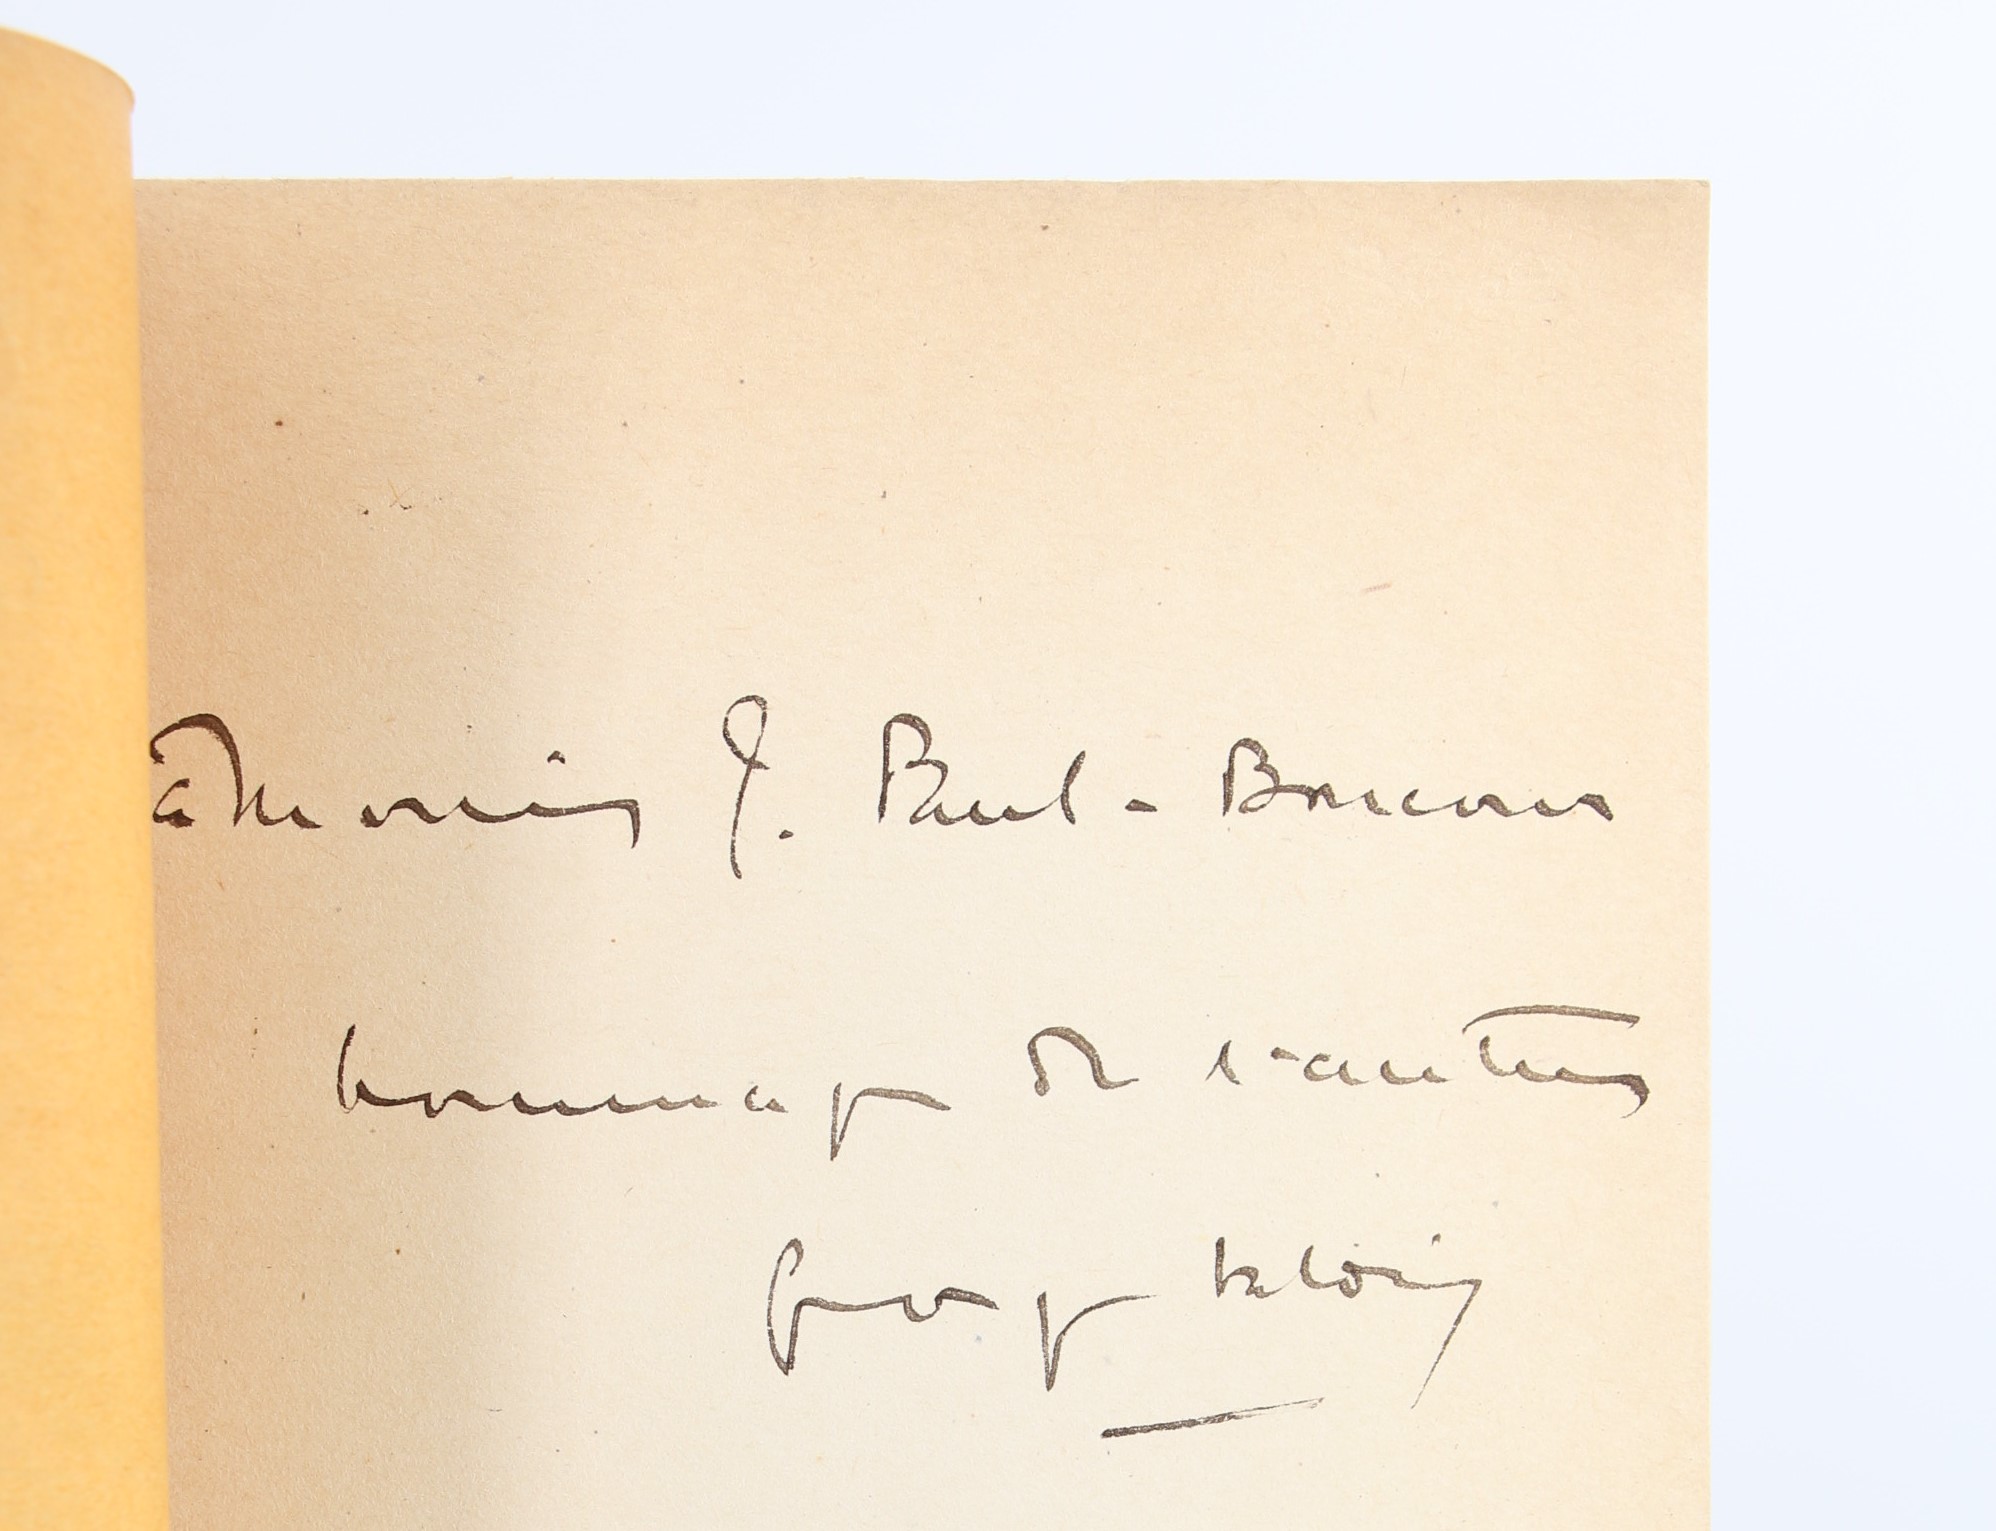 à Monsieur J. Paul-Boncour
hommage de l'auteur
George